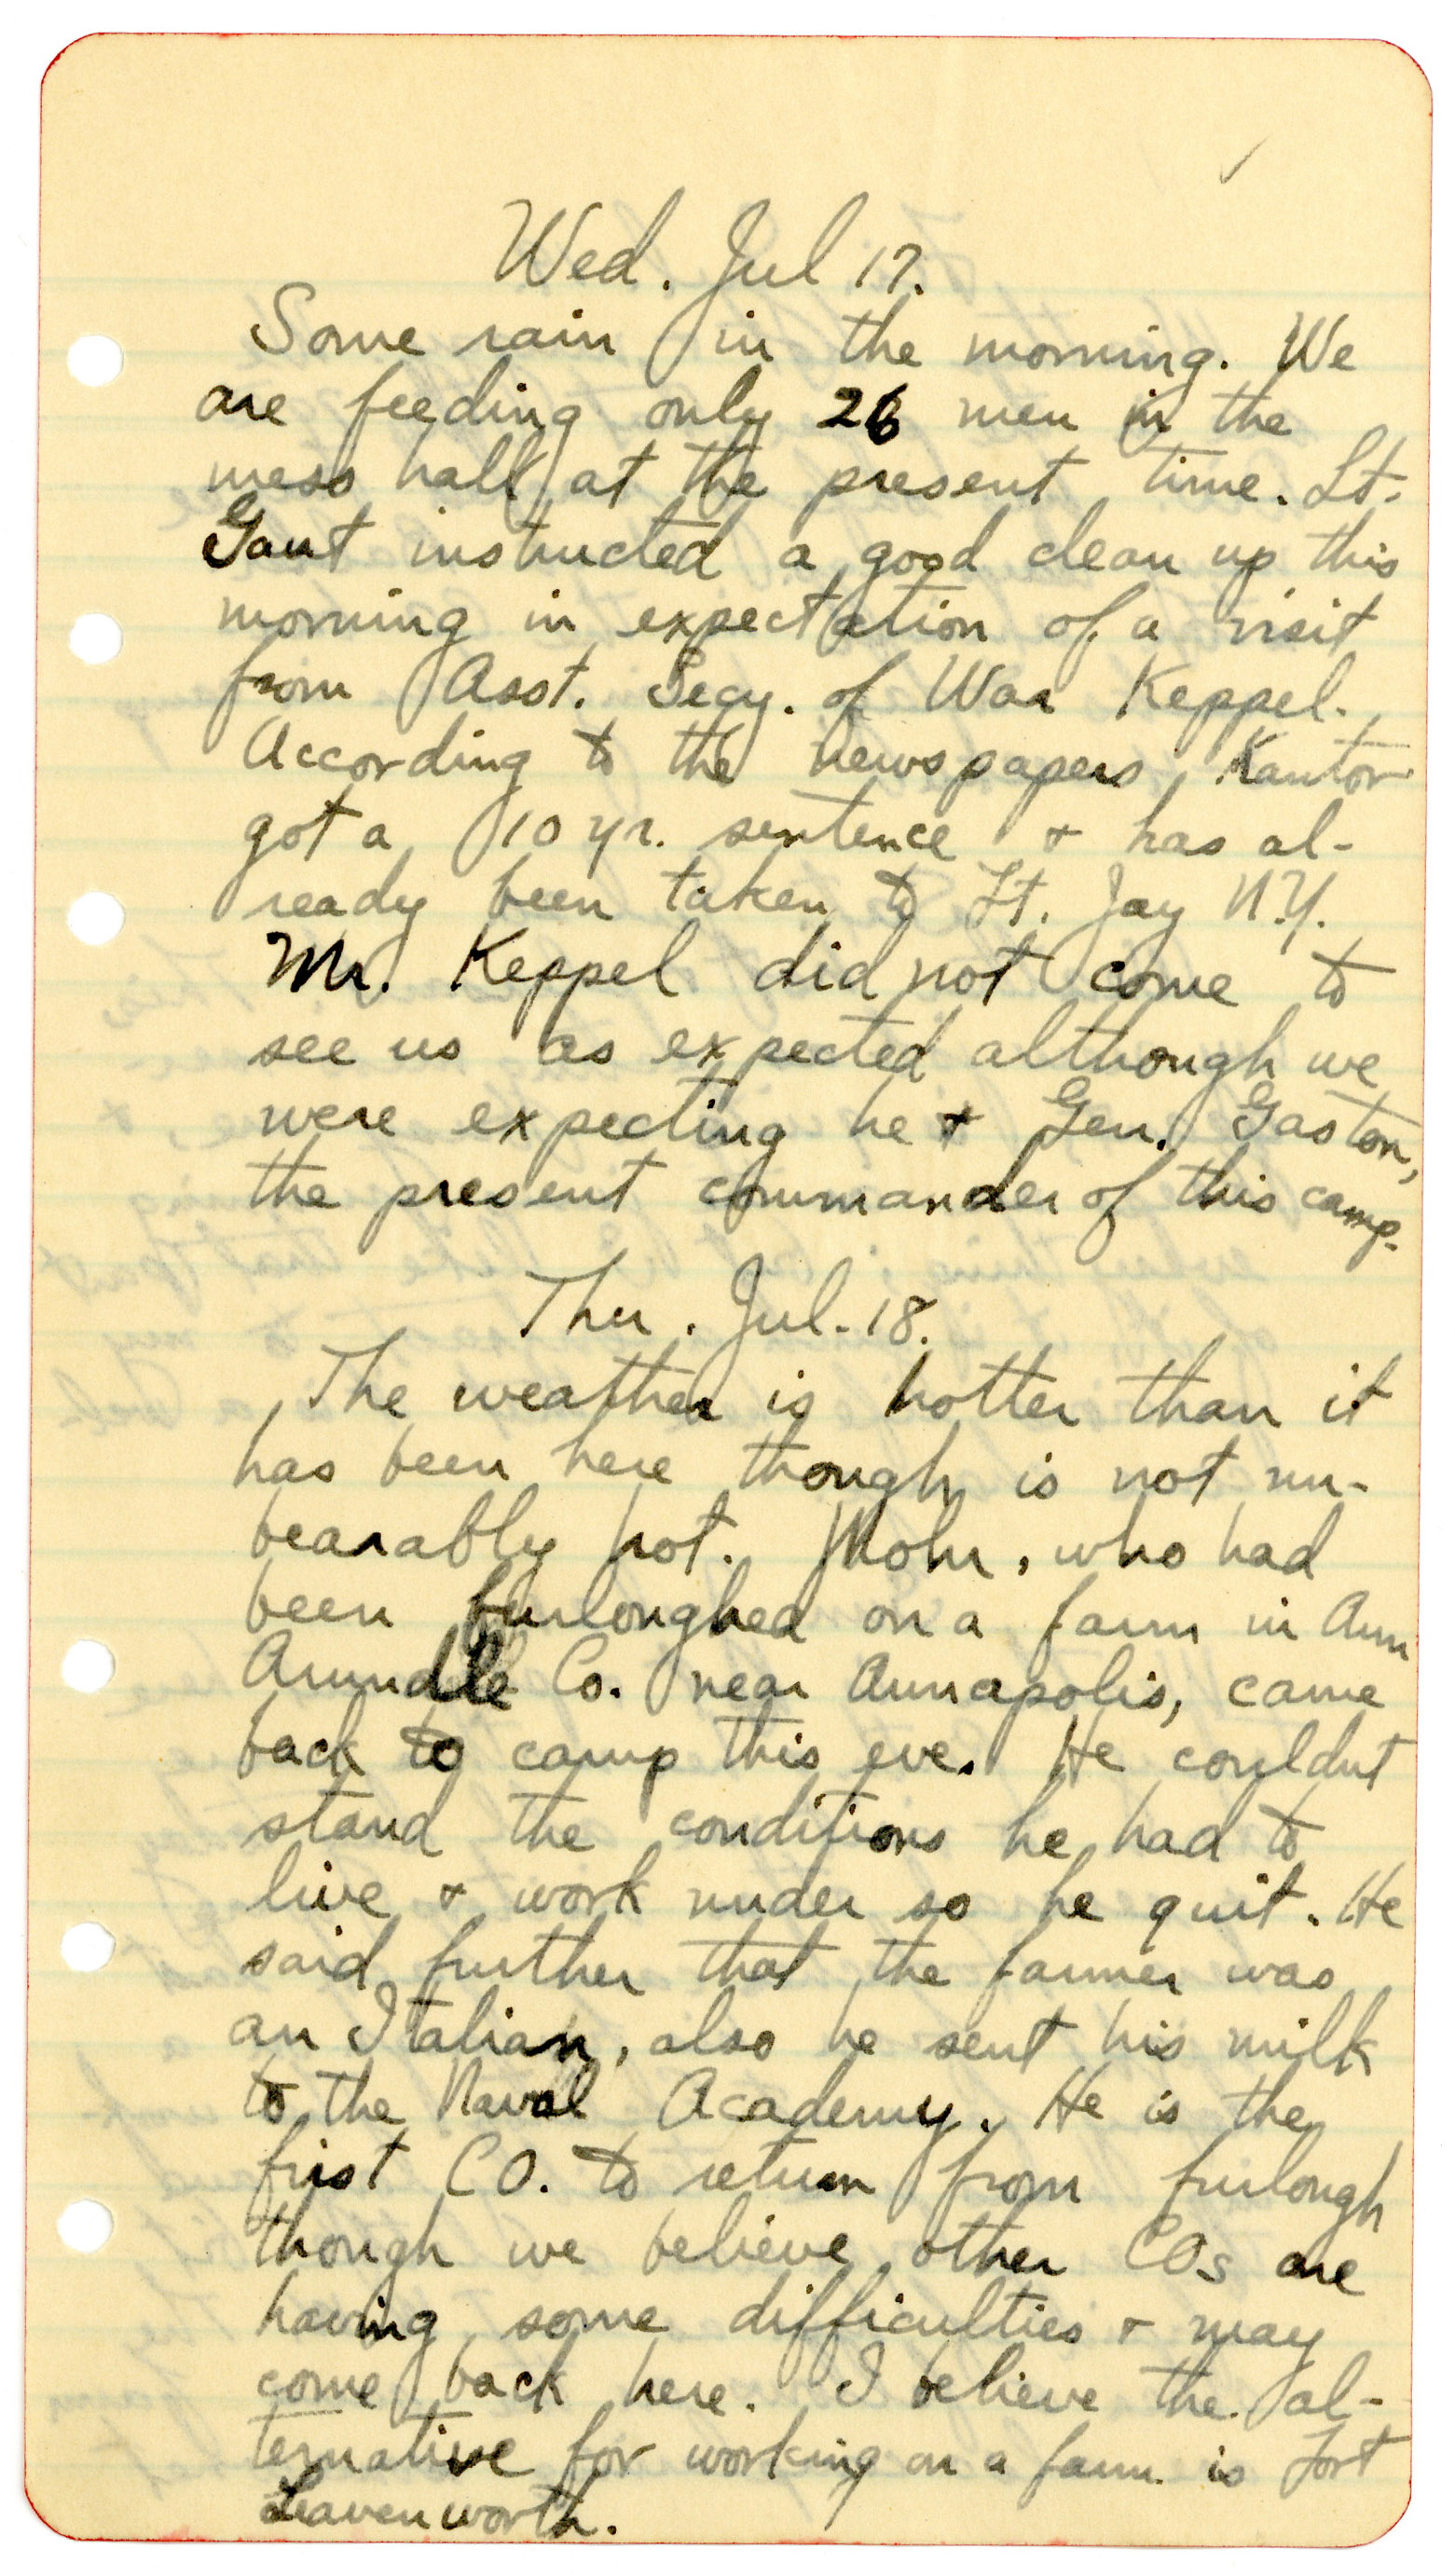 Wed. Jul 17.
Some rain in the morning. We
are feeding only 26 men in the
mess hall at the present time. Lt.
Gaut instructed a good clean up this
morning in expectation of a visit
from Asst. Secy. of War Keppel.
According to the newspapers, Kantor
got a 10 yr. sentence & has al-
ready been taken to Ft. Jay N.Y.
Mr. Keppel did not come to
see us as expected although we
were expecting he & Gen. Gaston,
the present commander of this camp.
Thu. Jul. 18.
The weather is hotter than it
has been here though is not un-
bearably hot. Mohr, who had
been furloughed on a farm in Ann
Arundle Co. near Annapolis, came
back to camp this eve. He couldnt
stand the conditions he had to
live & work under so he quit. He
said further that the farmer was
an Italian, also he sent his milk
to the Naval Academy. He is the
first CO. to return from furlough
though we believe other COs are
having some difficulties & may
come back here. I believe the al-
ternative for working on a farm is Fort
Leavenworth.